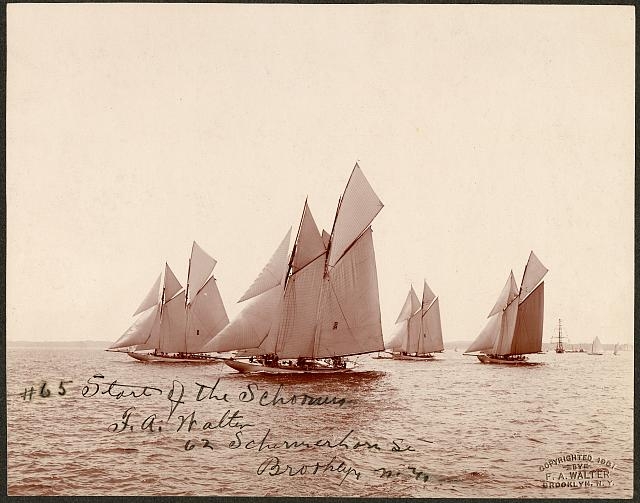 #65 Start of the Schooners
F. A. Walter
62 Schermerhorn St
Brooklyn N.Y.
COPYRIGHTED 1901
BY
F. A. WALTER
BROOKLYN, N.Y.